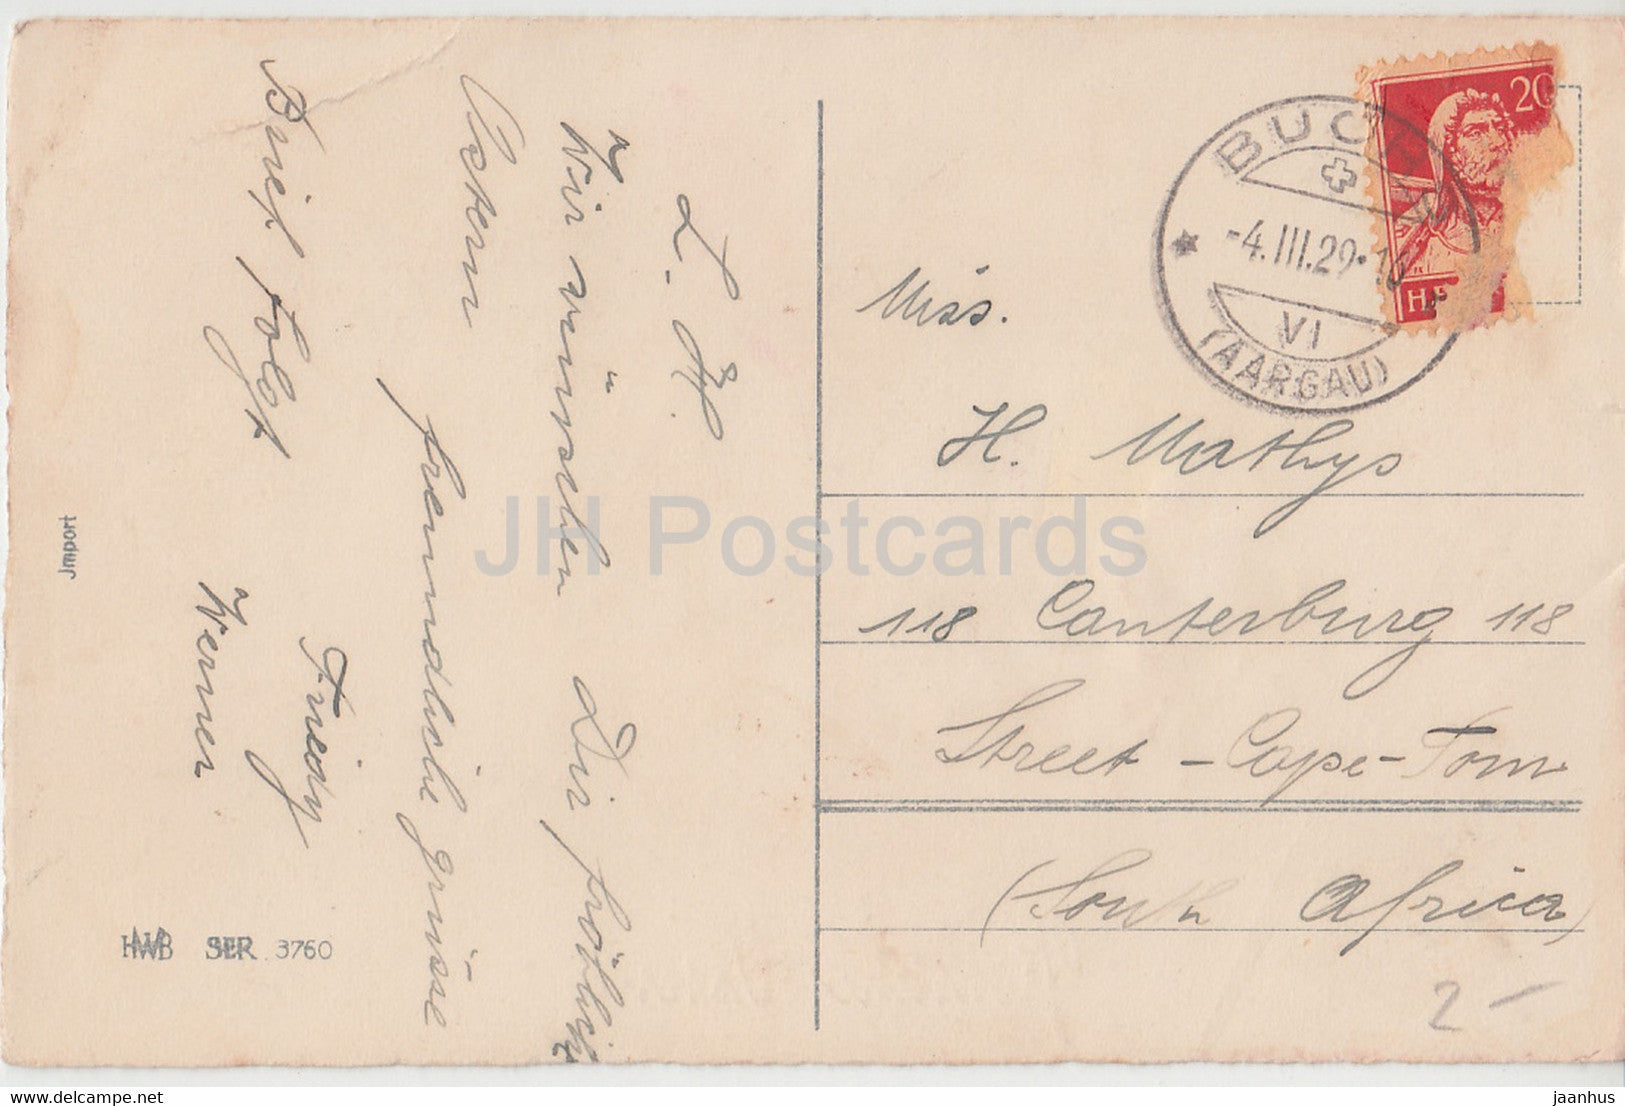 L. H.
Wir wünschen Dir fröhlich
Ostern
freundliche grüsse
Brief folgt
Friedy
Werner
Jmport
HWB SER. 3760
20
HE
BUCHS
-4.III.29.-10
VI
(AARGAU)
Miss.
H. Mathys
118 Canterburg 118
Street - Cape-Town
(South Africa)
2 -
JH Postcards
www.delcampe.net
jaanhus